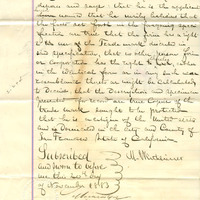 deposes and says that he is the applicant
above named that he verily believes that
the facts set forth in the foregoing speci-
fication are true that the firm has a right
to the use of the Trade mark described in
the specification, that no other person firm
or corporation has the right to such use
in the identical form or in any such near
resemblance thereto as might be calculated
to deceive that the description and specimens
presented for record are true copies of the
trade mark sought to be protected
that he is a citizen of the United States
and is domiciled in the City and County of
San Francisco State of California
Subscribed
and sworn to before
me this day
of November 1883